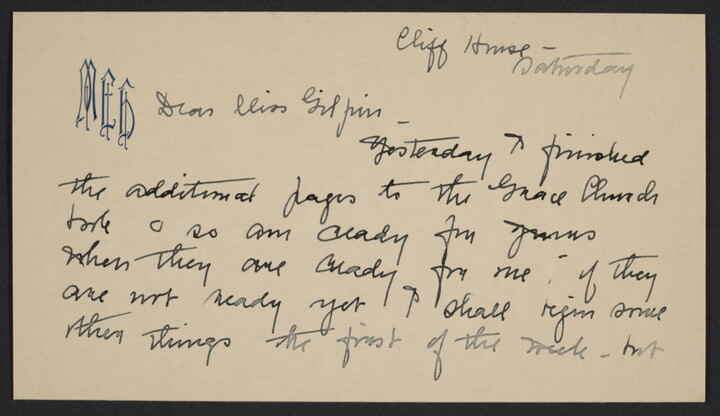 Cliff House –
Saturday
MEH
Dear Miss Gilpin –
Yesterday I finished
the additional pages to the Grace Church
book & so am ready for yours
when they are ready for me; if they
are not ready yet I shall begin some
other things the first of the week – but